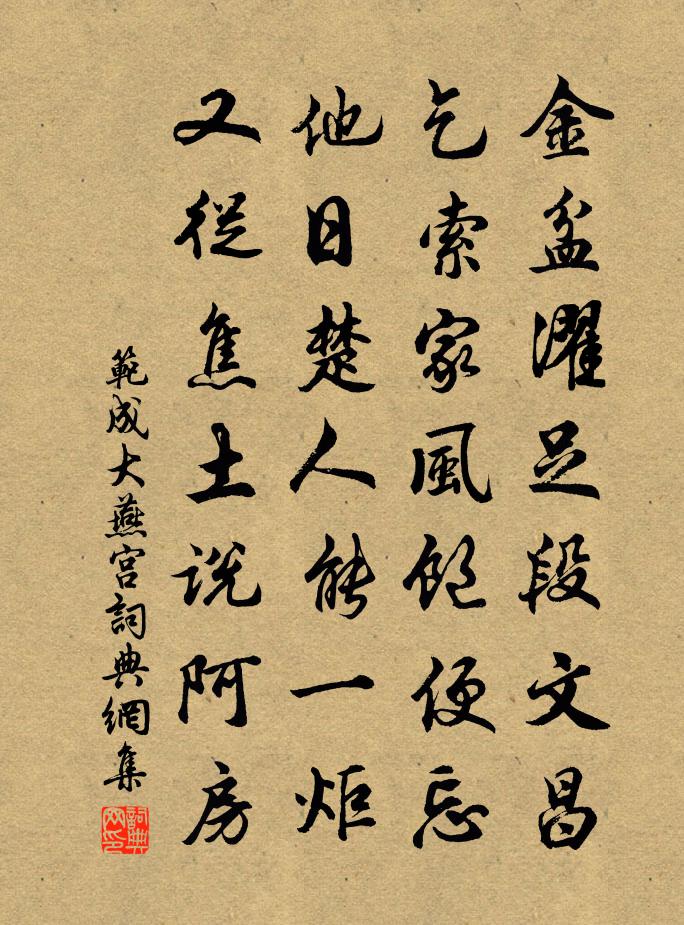 金盆濯足段文昌
乞索家風飽便忘
他日楚人能一炬
又從焦土說阿房
範成大燕宮詞典網集
詞典網印